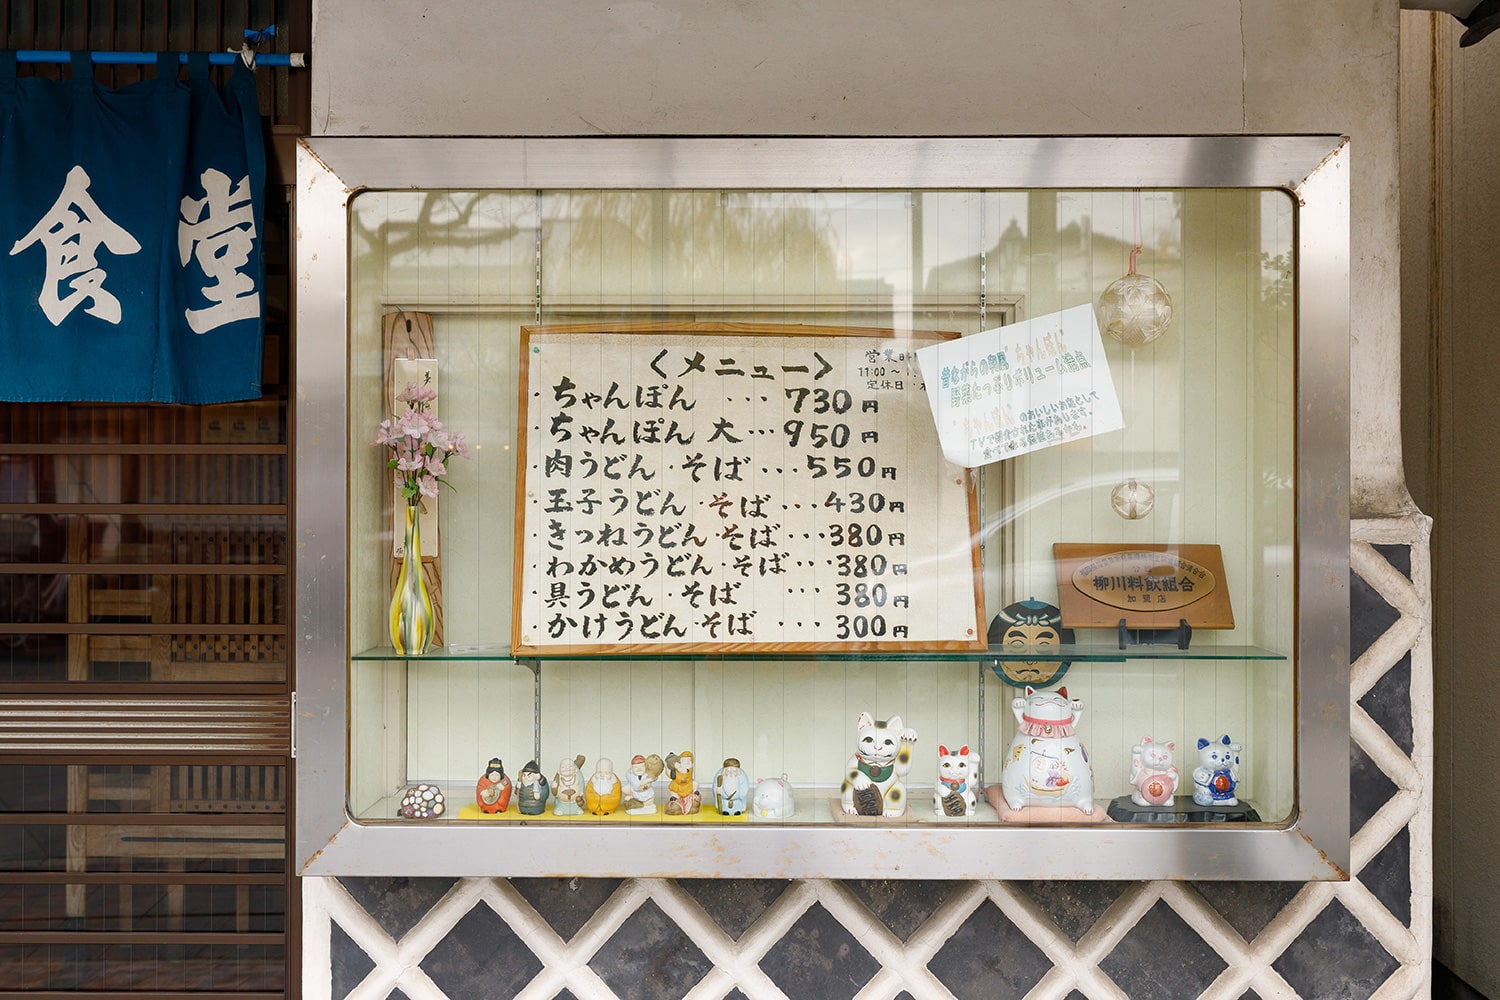 食堂
<メニュー>
営業時
11:00～
定休日
・ちゃんぽん … 730円
・ちゃんぽん 大…950円
・肉うどん・そば…550円
・玉子うどん・そば…430円
・きつねうどん・そば…380円
・わかめうどん・そば…380円
・具うどん・そば …380円
・かけうどん・そば …300円
昔ながらの和風ちゃんぽん
野菜たっぷりボリューム満点
ちゃんぽんのおいしいお店として
TVで紹介された事があります。
柳川料飲組合
加盟店